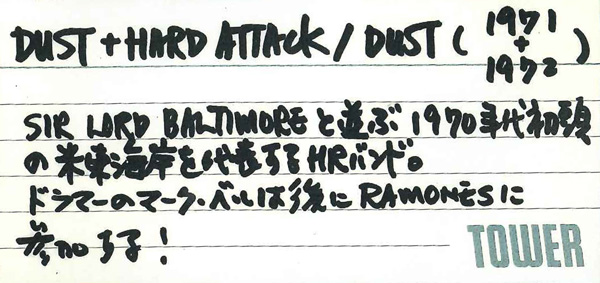 DUST + HARD ATTACK / DUST ( 1971 + 1972 )
SIR LORD BALTIMOREと遊ぶ1970年代初頭
の米東海岸を代表するHRバンド。
ドラマーのマーク・ベルは後にRAMONESに
参加する!
TOWER